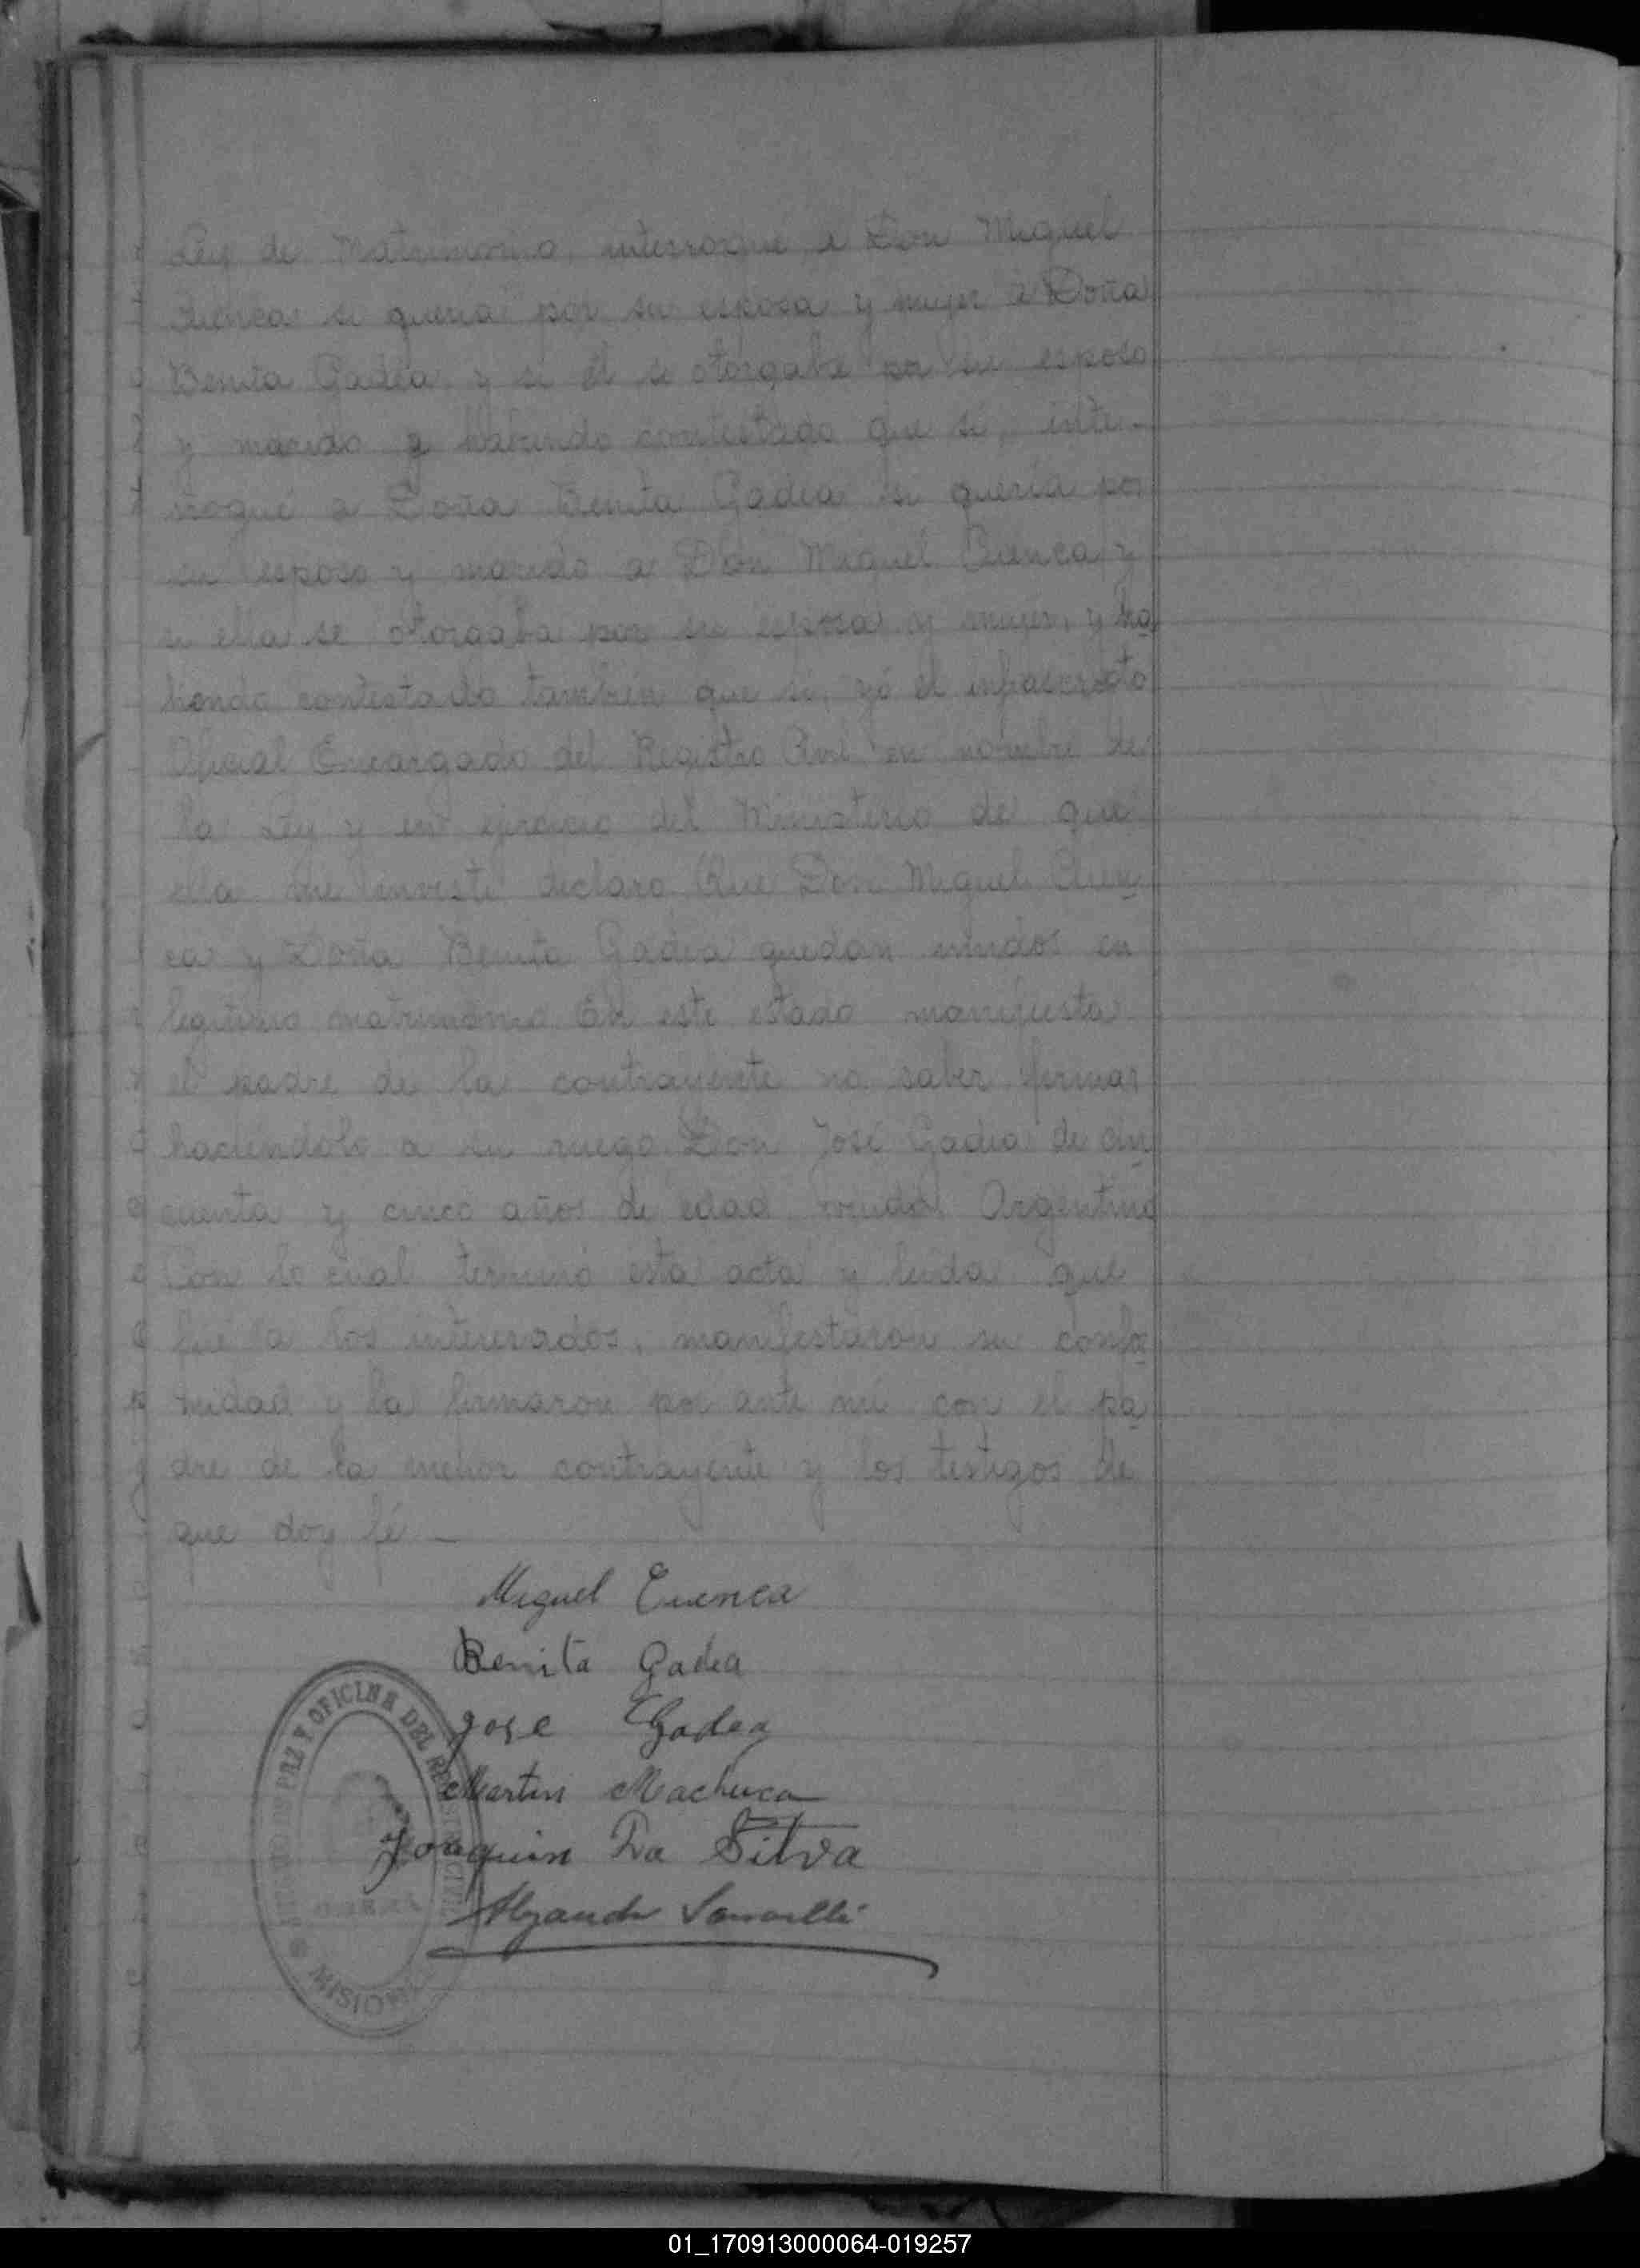 Ley de Matrimonio, interrogué a Don Miguel
Cuenca si queria por su esposa y mujer a Doña
Benita Gadea y si él se otorgaba por su esposo
y marido y habiendo contestado que si, inte-
rrogué a Doña Benita Gadea si queria por
su esposo y marido a Don Miguel Cuenca y
si ella se otorgaba por su esposa y mujer, y ha
biendo contestado también que si, yó el infrascripto
Oficial Encargado del Registro Civil en nombre de
la Ley y en ejercicio del Ministerio de que
ella me inviste declaro Que Don Miguel Cuen
ca y Doña Benita Gadea quedan unidos en
legitimo matrimonio En este estado manifiesta
el padre de la contrayente no saber firmar
haciendolo a su ruego Don José Gadea de cin
cuenta y cinco años de edad, viudo, Argentino
Con lo cual terminó esta acta y leida que
fué a los interesados, manifestaron su confor
midad y la firmaron por ante mi con el pa
dre de la menor contrayente y los testigos de
que doy fé —
Miguel Cuenca
Benita Gadea
Jose Gadea
Martin Machuca
Joaquin Da Silva
PAZ Y OFICINA DEL REGISTRO CIVIL
MISIONES
01_170913000064-019257